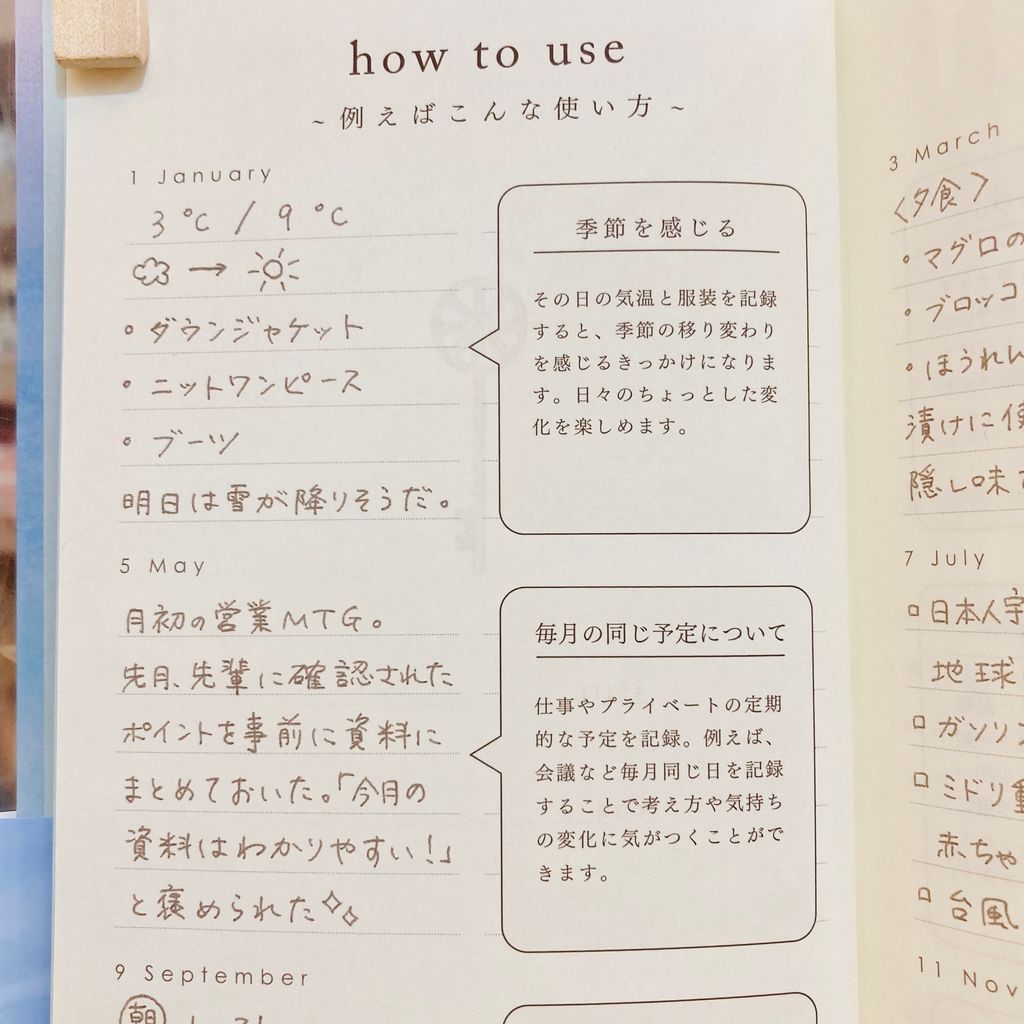 how to use
~例えばこんな使い方~
1 January
3℃ / 9℃
→
・ダウンジャケット
・ニットワンピース
・ブーツ
明日は雪が降りそうだ。
季節を感じる
その日の気温と服装を記録
すると、季節の移り変わり
を感じるきっかけになりま
す。日々のちょっとした変
化を楽しめます。
5 May
月初の営業MTG。
先月、先輩に確認された
ポイントを事前に資料に
まとめておいた。「今月の
資料はわかりやすい！」
と褒められた
毎月の同じ予定について
仕事やプライベートの定期
的な予定を記録。例えば、
会議など毎月同じ日を記録
することで考え方や気持ち
の変化に気がつくことがで
きます。
9 September
朝
3 March
〈夕食〉
・マグロの
・ブロッコ
・ほうれん
漬けに使
隠し味で
7 July
□日本人宇
地球
□ガソリン
□ミドリ重
赤ちゃ
□台風
11 Nov